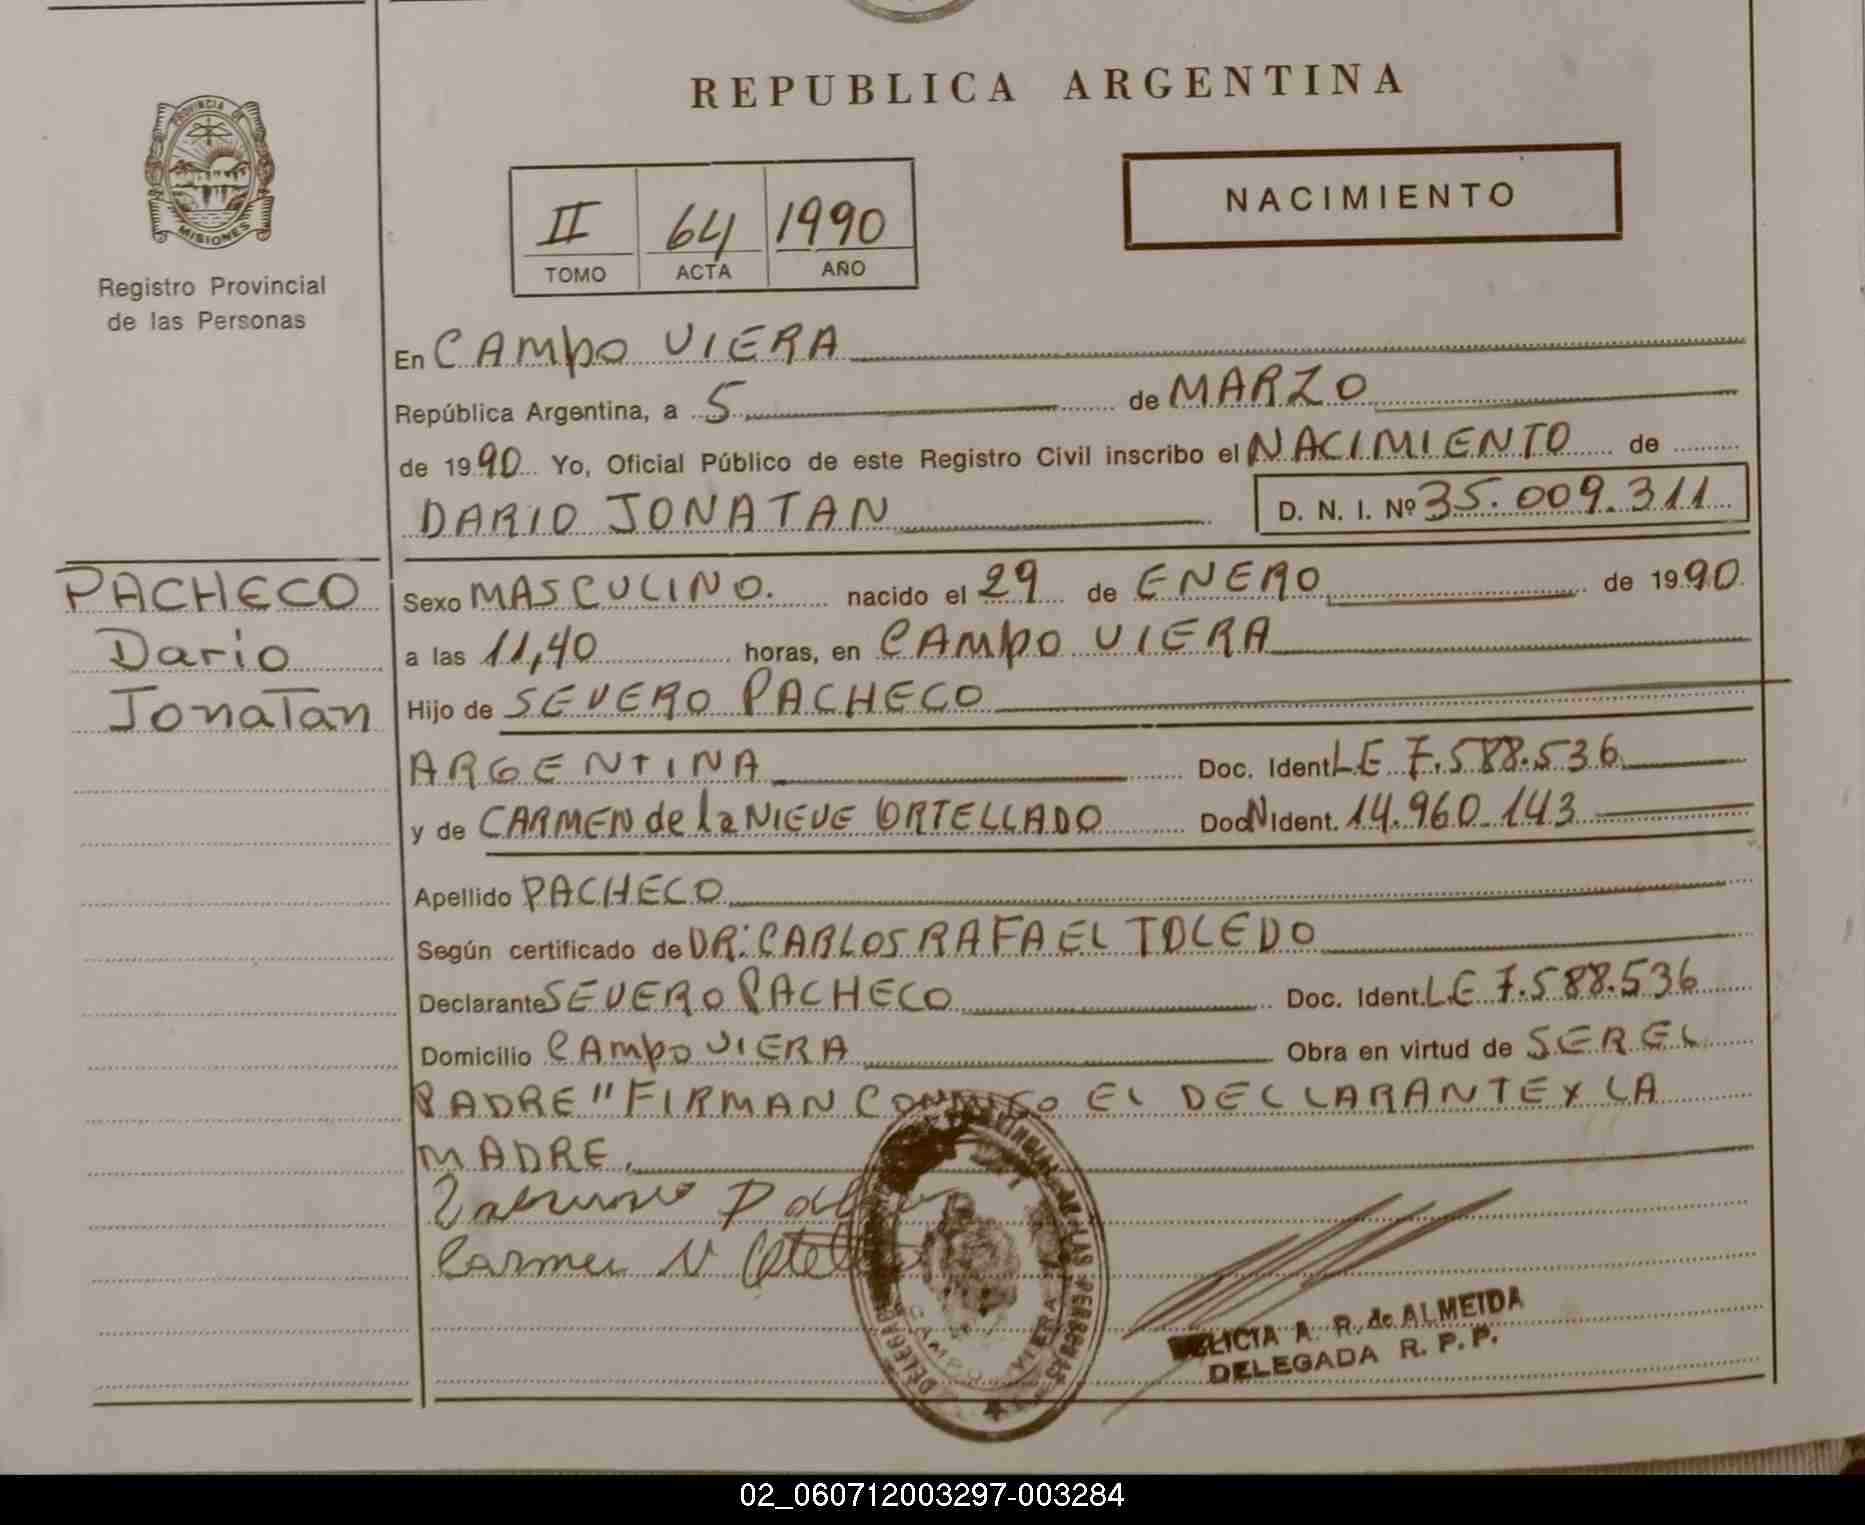 REPUBLICA ARGENTINA
PROVINCIA DE
MISIONES
Registro Provincial
de las Personas
II 64 1990
TOMO ACTA AÑO
NACIMIENTO
En CAMPO VIERA
República Argentina, a 5 de MARZO
de 1990 Yo, Oficial Público de este Registro Civil inscribo el NACIMIENTO de
DARIO JONATAN D. N. I. Nº 35.009.311
PACHECO
Dario
Jonatan
Sexo MASCULINO. nacido el 29 de ENERO de 1990
a las 11,40 horas, en CAMPO VIERA
Hijo de SEVERO PACHECO
ARGENTINA Doc. Ident LE 7.588.536
y de CARMEN de la NIEVE ORTELLADO Doc N Ident. 14.960.143
Apellido PACHECO
Según certificado de DR: CARLOS RAFAEL TOLEDO
Declarante SEVERO PACHECO Doc. Ident. LE 7.588.536
Domicilio CAMPO VIERA Obra en virtud de SER EL
PADRE" FIRMAN CONMIGO EL DECLARANTE Y LA
MADRE.
Carmen N
CAMPO VIERA
A. R. de ALMEIDA
DELEGADA R. P. P.
02_060712003297-003284